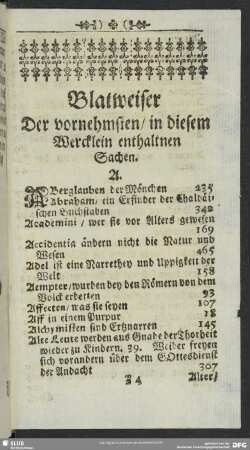 Blatweiser
Der vornehmsten/ in diesem
Wercklein enthaltnen
Sachen.
A.
ABerglauben der Mönchen 235
Abraham/ ein Erfinder der Chaldäi-
schen Buchstaben 342
Academini/ wer sie vor Alters gewesen
169
Accidentia ändern nicht die Natur und
Wesen 465
Adel ist eine Narrethey und Uppigkeit der
Welt 158
Aempter/ wurden bey den Römern von dem
Volck erbetten 93
Affecten/ was sie seyen 107
Aff in einem Purpur 18
Alchymisten sind Ertznarren 145
Alte Leute werden aus Gnade der Thorheit
wieder zu Kindern. 39. Weiber freyen
sich vorandern über dem GOttesdienst
der Andacht 307
Z 4 Alter/
SLUB
DFG